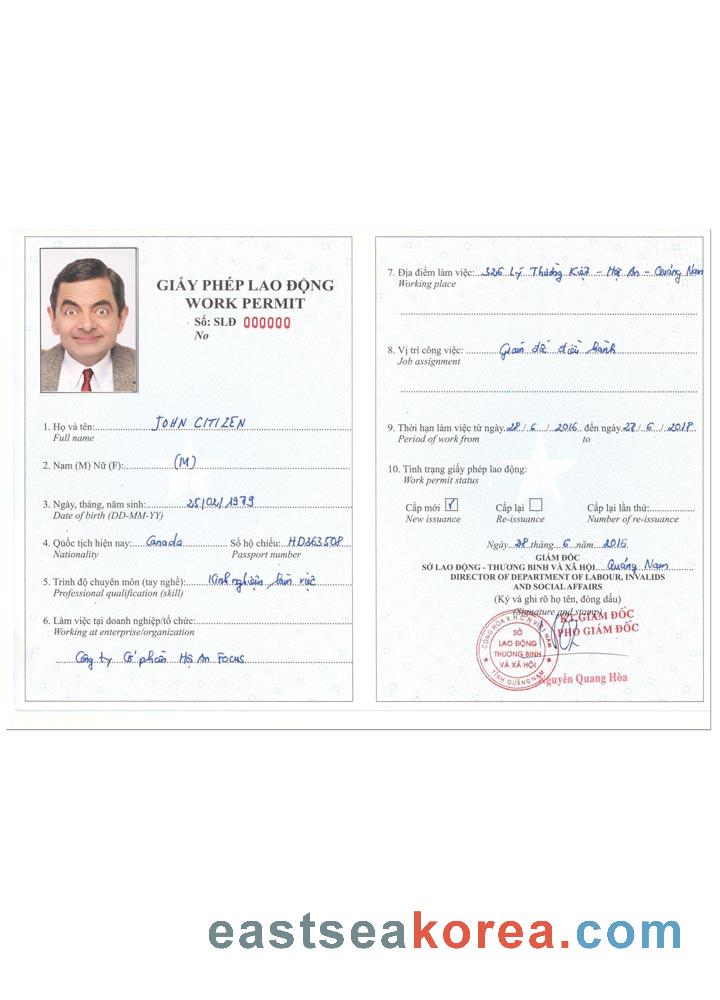 GIẤY PHÉP LAO ĐỘNG
WORK PERMIT
Số: SLĐ 000000
No
1. Họ và tên: JOHN CITIZEN
Full name
2. Nam (M) Nữ (F): (M)
3. Ngày, tháng, năm sinh: 25/02/1979
Date of birth (DD-MM-YY)
4. Quốc tịch hiện nay: Canada Số hộ chiếu: HD363508
Nationality Passport number
5. Trình độ chuyên môn (tay nghề): Kinh nghiệm làm việc
Professional qualification (skill)
6. Làm việc tại doanh nghiệp/tổ chức:
Working at enterprise/organization
Công ty Cổ phần Hội An Focus
7. Địa điểm làm việc: 326 Lý Thường Kiệt - Hội An - Quảng Nam
Working place
8. Vị trí công việc: Giám đốc điều hành
Job assignment
9. Thời hạn làm việc từ ngày 28/6/2016 đến ngày 27/6/2018
Period of work from to
10. Tình trạng giấy phép lao động:
Work permit status
Cấp mới Cấp lại Cấp lại lần thứ:
New issuance Re-issuance Number of re-issuance
Ngày 28 tháng 6 năm 2016
GIÁM ĐỐC
SỞ LAO ĐỘNG - THƯƠNG BINH VÀ XÃ HỘI Quảng Nam
DIRECTOR OF DEPARTMENT OF LABOUR, INVALIDS
AND SOCIAL AFFAIRS
(Ký và ghi rõ họ tên, đóng dấu)
(Signature and stamp)
KT.GIÁM ĐỐC
PHÓ GIÁM ĐỐC
CỘNG HÒA X.H.C.N VIỆT NAM
SỞ
LAO ĐỘNG
THƯƠNG BINH
VÀ XÃ HỘI
TỈNH QUẢNG NAM
Nguyễn Quang Hòa
eastseakorea.com